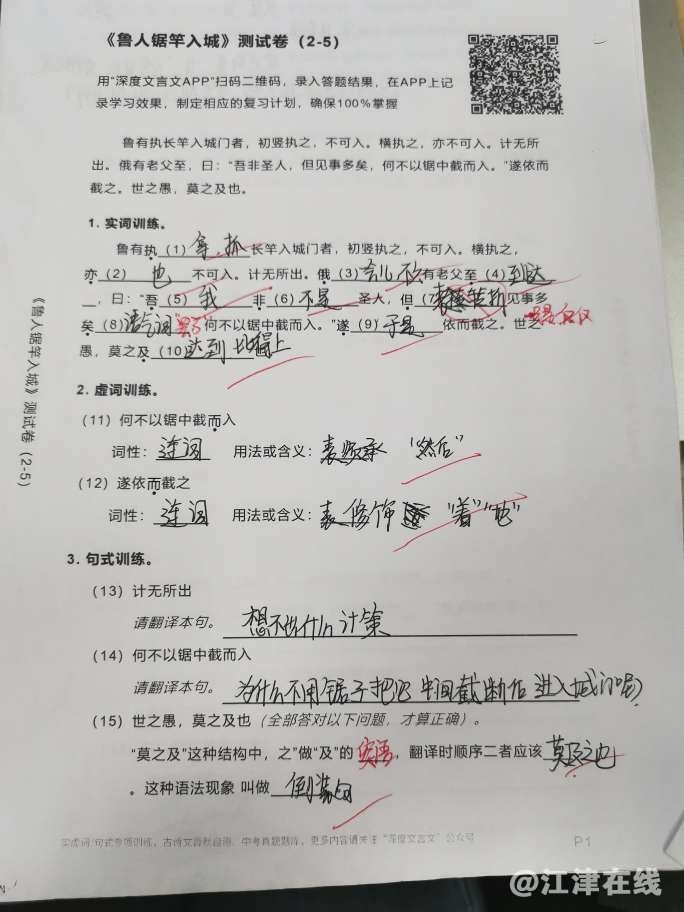 《鲁人锯竿入城》测试卷（2-5）
用“深度文言文APP”扫码二维码，录入答题结果，在APP上记
录学习效果，制定相应的复习计划，确保100%掌握
鲁有执长竿入城门者，初竖执之，不可入。横执之，亦不可入。计无所
出。俄有老父至，曰：“吾非圣人，但见事多矣，何不以锯中截而入。”遂依而
截之。世之愚，莫之及也。
1. 实词训练。
鲁有执（1）拿、抓长竿入城门者，初竖执之，不可入。横执之，
亦（2）也不可入。计无所出。俄（3）会儿有老父至（4）到达
，曰：“吾（5）我非（6）不是圣人，但（7）表转折见事多
只是、仅仅
矣（8）语气词何不以锯中截而入。”遂（9）于是依而截之。世之
愚，莫之及（10）达到 比得上
2. 虚词训练。
（11）何不以锯中截而入
词性：连词 用法或含义：表顺承 “然后”
（12）遂依而截之
词性：连词 用法或含义：表修饰 “着”“地”
3. 句式训练。
（13）计无所出
请翻译本句。想不出什么计策
（14）何不以锯中截而入
请翻译本句。为什么不用锯子把它中间截断后进入城门呢
（15）世之愚，莫之及也（全部答对以下问题，才算正确）。
“莫之及”这种结构中，之“做“及”的宾语，翻译时顺序二者应该莫及之也
。这种语法现象 叫做 倒装句
实虚词/句式专项训练，古诗文背默自测，中考真题题库，更多内容请关注“深度文言文”公众号
P1
《鲁人锯竿入城》测试卷（2-5）
@江津在线